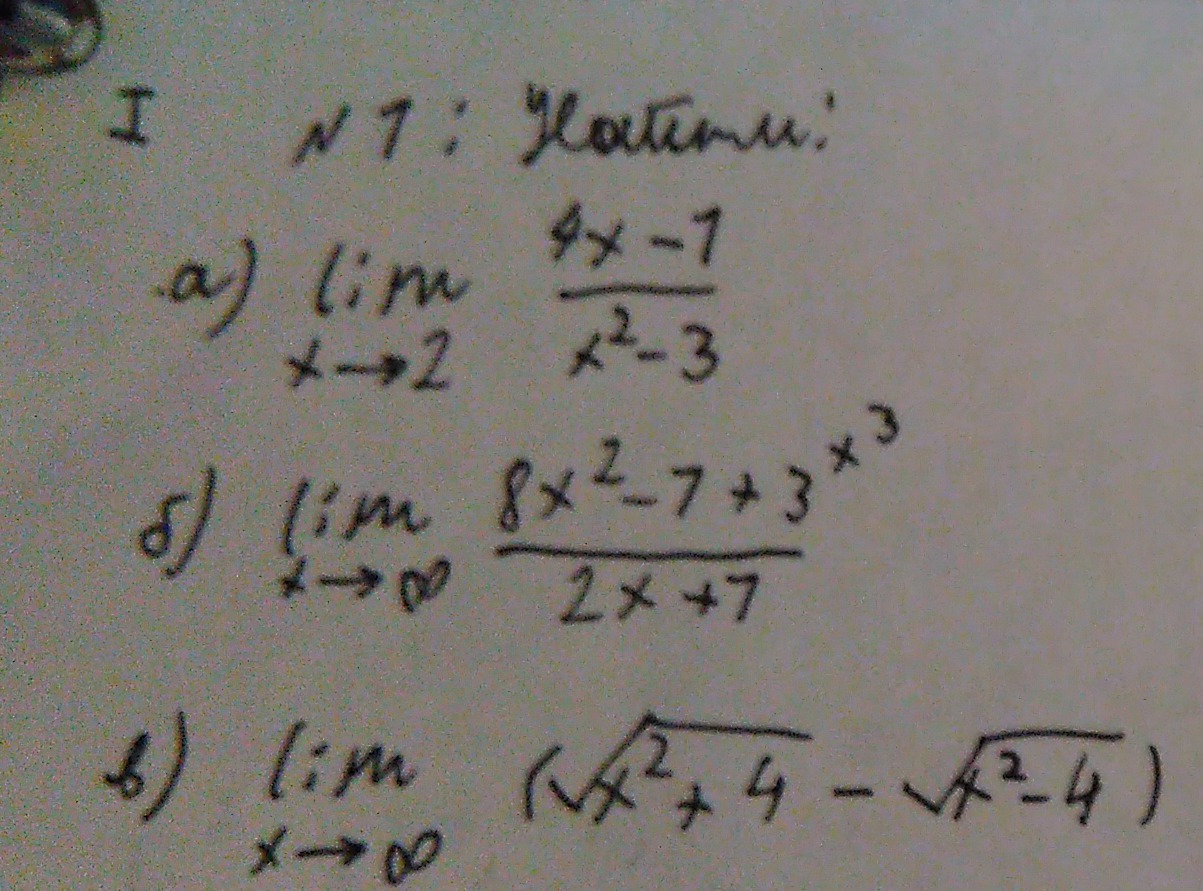 I N1: Найти:
а) lim x→2 (4x-1)/(x²-3)
б) lim x→∞ (8x²-7+3^x³)/(2x+7)
в) lim x→∞ (√(x²+4) - √(x²-4))